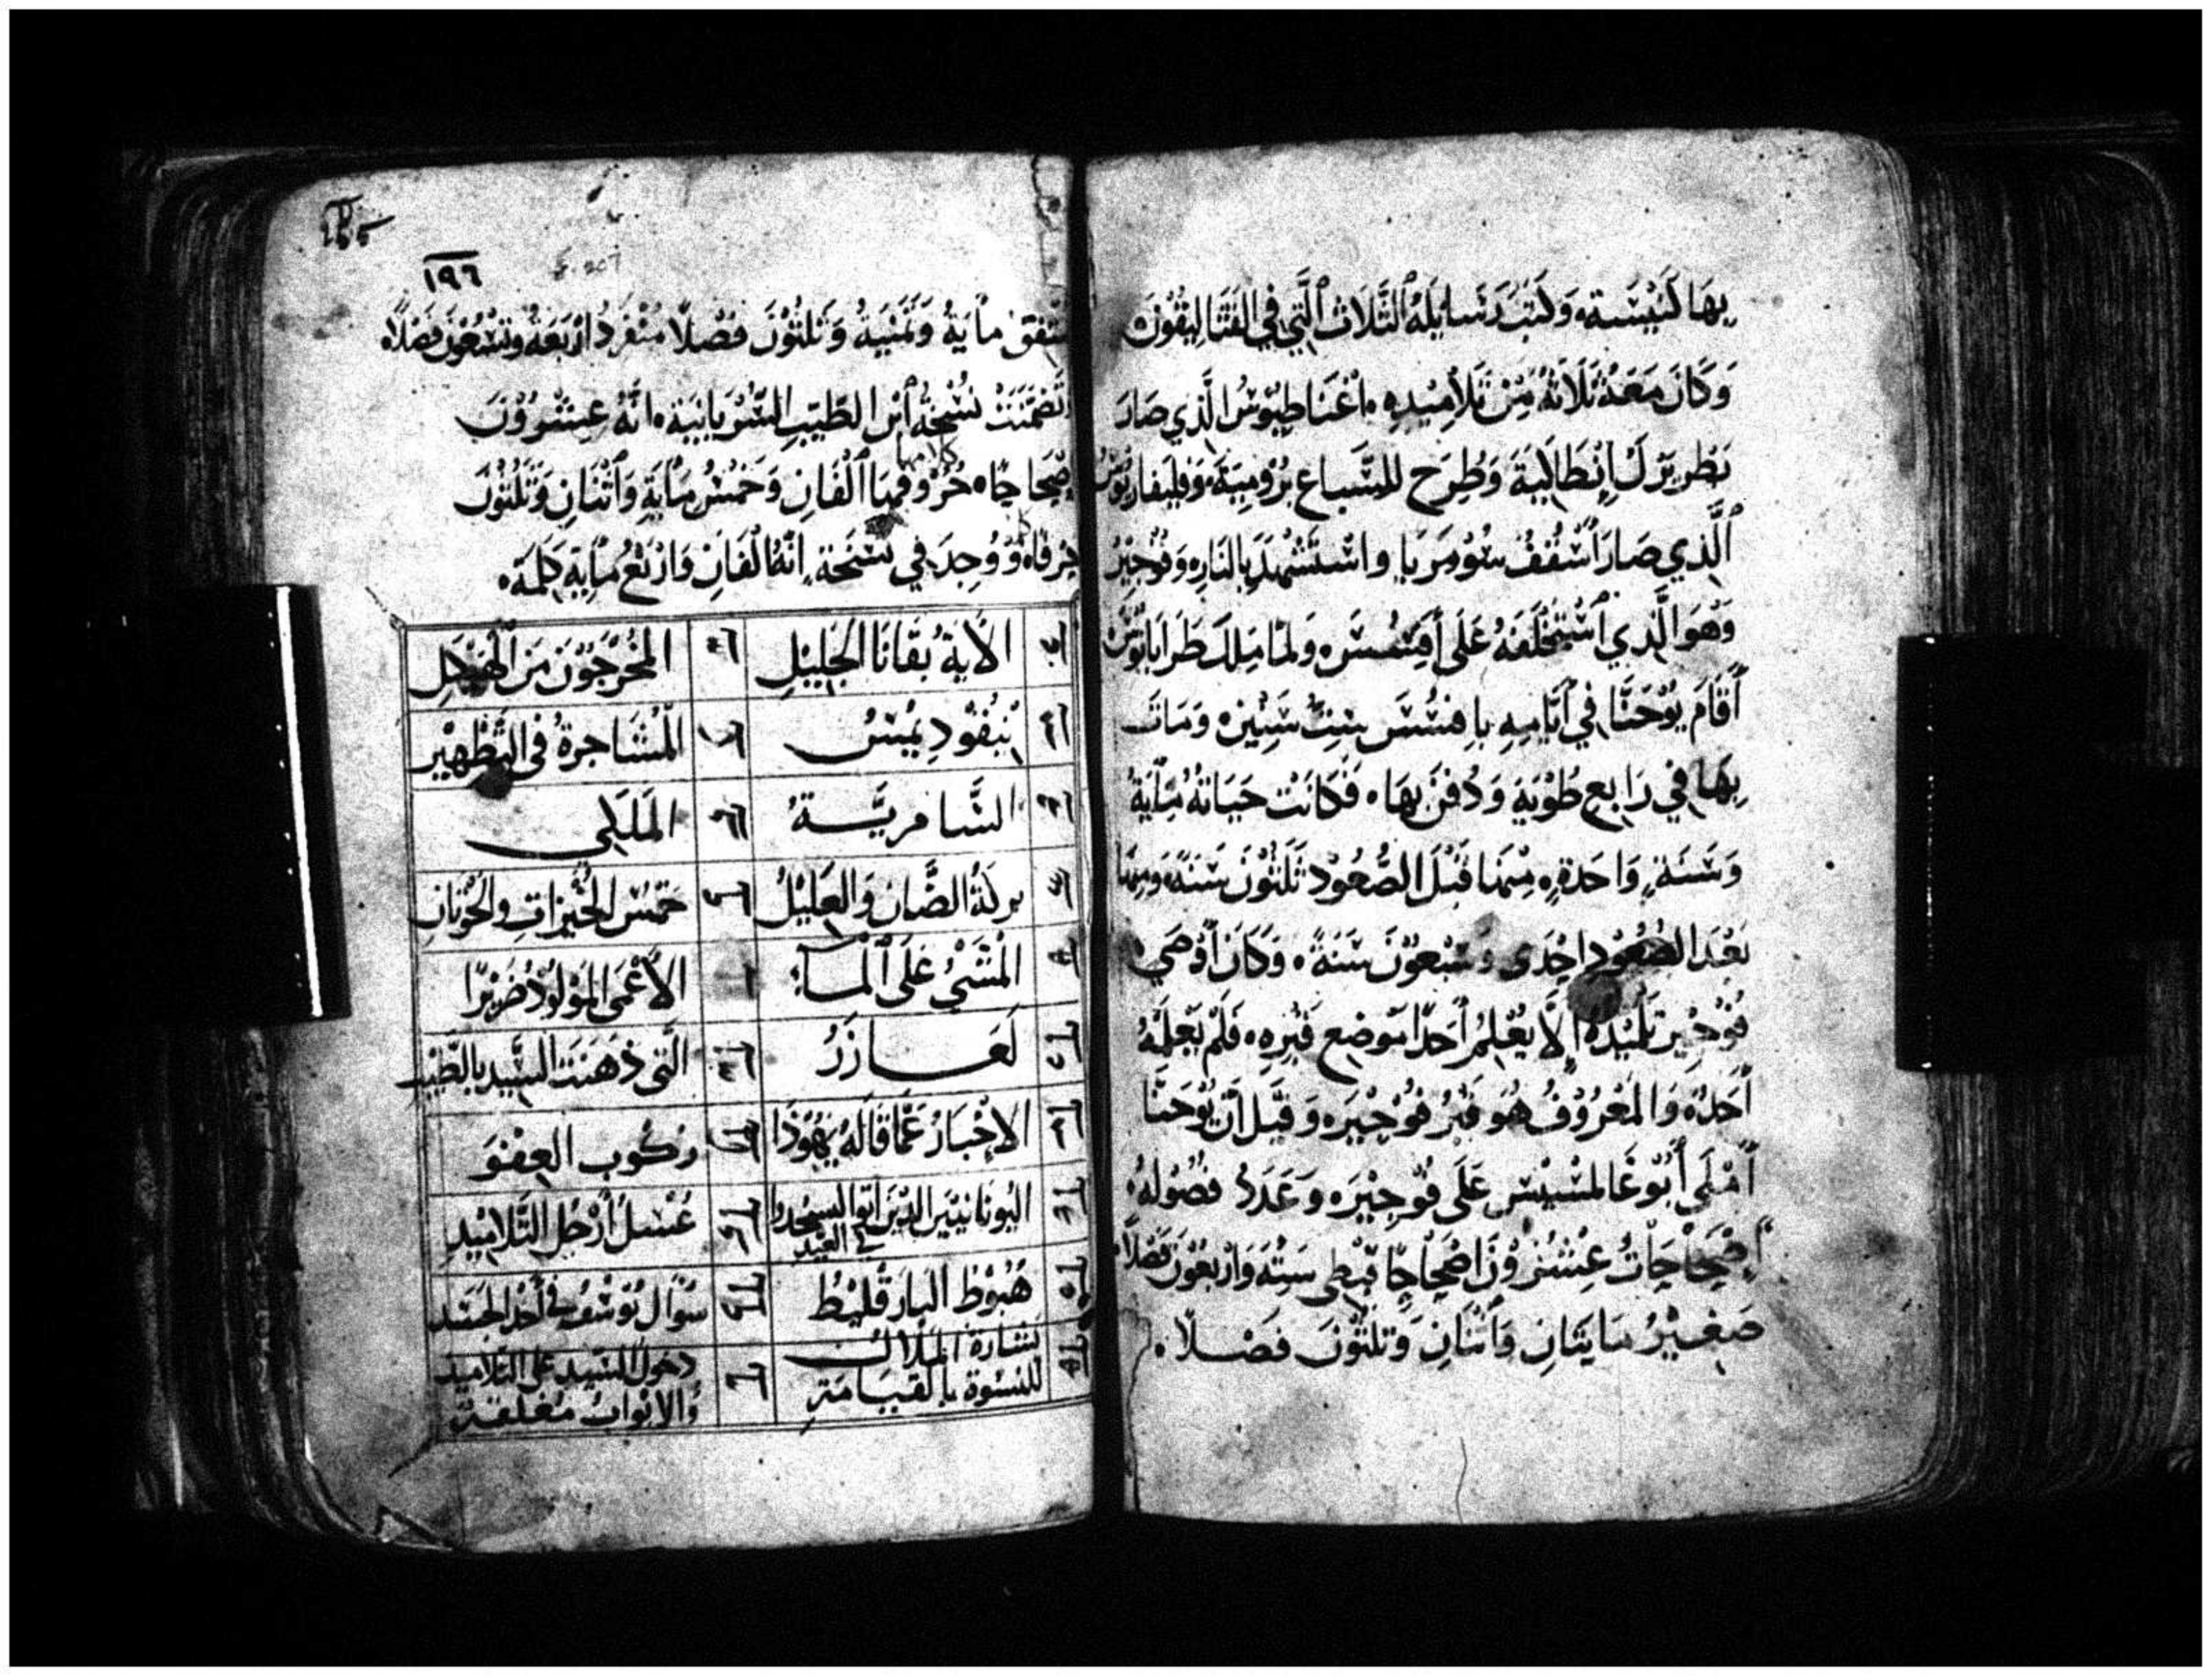 بِهَا كَنِيْسَة، وَكَتَبَ رَسَايلَهُ الثَّلَاثَ الَّتِي فِي القَتَالِيقُونَ
وَكَانَ مَعَهُ ثَلَاثَةُ مِنْ تَلَامِيْدِهِ، اغْنَاطِيُوسُ الَّذِي صَارَ
بَطْرِيَرْكَ إِنْطَاكِيَة وَطُرِحَ لِلسِّبَاع بِرُومِيَة، وَفليفاربُوس
الَّذِي صَارَ اُسْقُفُ سُوْمَرَيا وَاسْتَشْهَدَ بِالنَارِ، وَفُوْجِيْرُ
وَهوَ الَّذِي اسْتَخْلَفَهُ عَلَى أفَسُسَ، وَلَمَّا مَلَكَ طَرَايَانُوسُ
أَقَامَ يُوْحَنَّا فِي أَيَّامِهِ بِافَسُسَ سِتَّ سِنِيْنَ، وَمَاتَ
بِهَا فِي رَابِع طُوْبَة وَدُفِنَ بِهَا، فَكَانَتْ حَيَاتَهُ مِأْيَةُ
وَسَنَةٍ وَاحدَةٍ، مِنْهَا قَبْلَ الصُّعُودِ ثَلَثُوْنَ سَنَةً، وَمِنْهَا
بَعْدَ الصُّعُوْدِ احْدَى وَسَبْعُوْنَ سَنَةً، وَكَانَ أَوْصَى
فُوْجِيْر تَلْمِيْدَهُ الَّا يُعْلِمُ أَحَدًا مَوضِع قَبْرِهِ، فَلَمْ يَعْلَمْهُ
أَحَدُ، وَالمَعْرُوْفُ هُوَ قَبْرُ فُوْجِيْرَ، وَقِيْلَ أَنْ يُوْحَنَّا
أَمْلَى أَبُوْغَالمسِيْسَ عَلَى فُوْجِيْرَ، وَعَدَدُ فُصُولهُ،
اِصْحَاحَاتُ عِشْرُوْنَ اصْحَاحًا قِبْطِى سِتَة وَارْبَعُوْنَ فَصْلاً
صَغِيْرُ مَايَتَانِ وَاثْنَانِ وَثَلثُوْنَ فَصْلاً،
١٩٦
مُتَّفِق مأيَةُ وَثَمَنْيَةُ وَثَلثُوْنَ فَصْلًا مُنْفَرِدُ ارْبَعَةُ وَتِسْعُوْنَ فَصْلًا،
وَتَضَمَّنَتْ نُسْخَةُ اَبْن الطَّيِّب السُّرْيَانِيَة، انَّهُ عِشْرُوْنَ
اِصْحَاحًا، حُرُوفهَا أَلْفَانِ وَخَمْسُ مِأْيَةِ وَاثْنَانِ وَثَلَثُوْنَ
حَرْفًا، وَوُجِدَ فِي نُسْخَة، اِنَّهَا أَلفَانِ وَارْبَعُ مِأيَة كَلِمَة،
الاَيَةُ بقَانَا الجَلِيْلِ
المُخْرَجُوْنَ مِنَ الهَيْكَلِ
نيقُوْدِيْمُسُ
الْمُشَاجرَةُ فِى التَّطْهِيْر
السَّامرِيَّــةُ
المَلَكِى
بِركَةُ الضَّان وَالعَلِيْلُ
خَمْسُ الخُبْزَاتِ وَالحُوْتَانِ
الْمَشَىْ عَلَى الْمَـاءِ
الأَعْمَى المَوْلُوْدُ ضَرِيْرًا
لَعَــازَرُ
الَّتِى دَهَنَت السَّيِّد بالطِّيْبِ
الاِخْبَارُ عَمَّا قَالَهُ يَهُوْدَا
رُكُوب العِفْوَ
اليُونَانيِّيْنَ الَّذِيْنَ اتَوا ليَسْجُدوا فى العيد
غُسْلُ أَرْجُلِ التَّلَامِيْدِ
هُبُوْطُ البَارَقْلِيْطُ
سُوَّال يُوسُفُ فى أَخْدِ الجَسَد
بشَارَة المَلَاك للنِسْوَة بالقيَامَةِ
دخول السَّيد على التَلاميد والابْوَابُ مُغْلَقَة